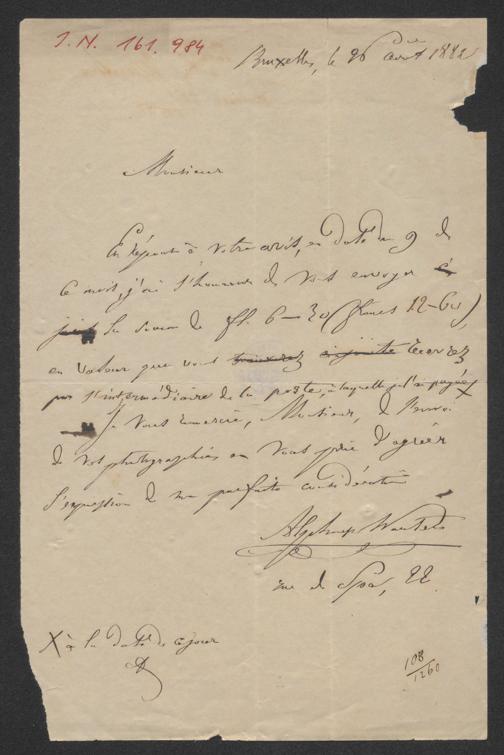 J. N. 161.984
Bruxelles, le 26 avril 1882
Monsieur
En réponse à votre avis, en date du 9 de
ce mois, j'ai l'honneur de vous envoyer
la somme de fl. 6-30 (francs 12-60),
en valeur que vous recevrez
par l'intermédiaire de la poste, à laquelle je l'ai payée X
Je vous remercie, Monsieur, de l'envoi
de vos photographies et vous prie d'agréer
l'expression de ma parfaite considération
Alphonse Wauters
rue de Spa, 22.
X à la date de ce jour
108
1260